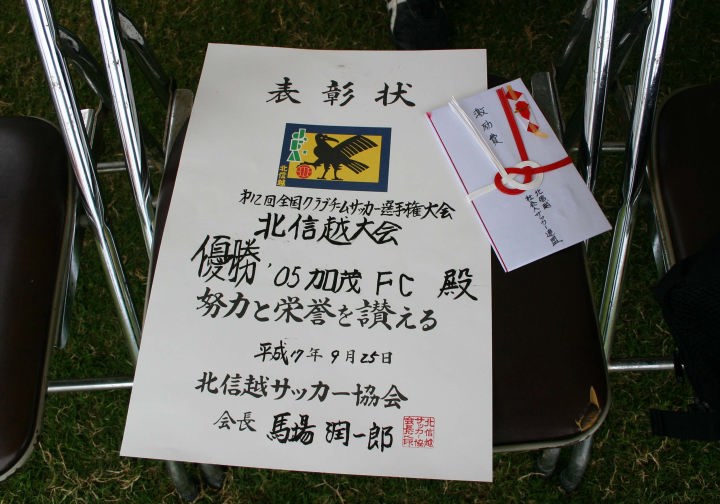 表彰状
北信越
第12回全国クラブチームサッカー選手権大会
北信越大会
優勝 '05加茂FC 殿
努力と栄誉を讃える
平成17年9月25日
北信越サッカー協会
会長 馬場潤一郎
北信越
サッカー協
会長之印
激励費
北信越
社会人サッカー連盟